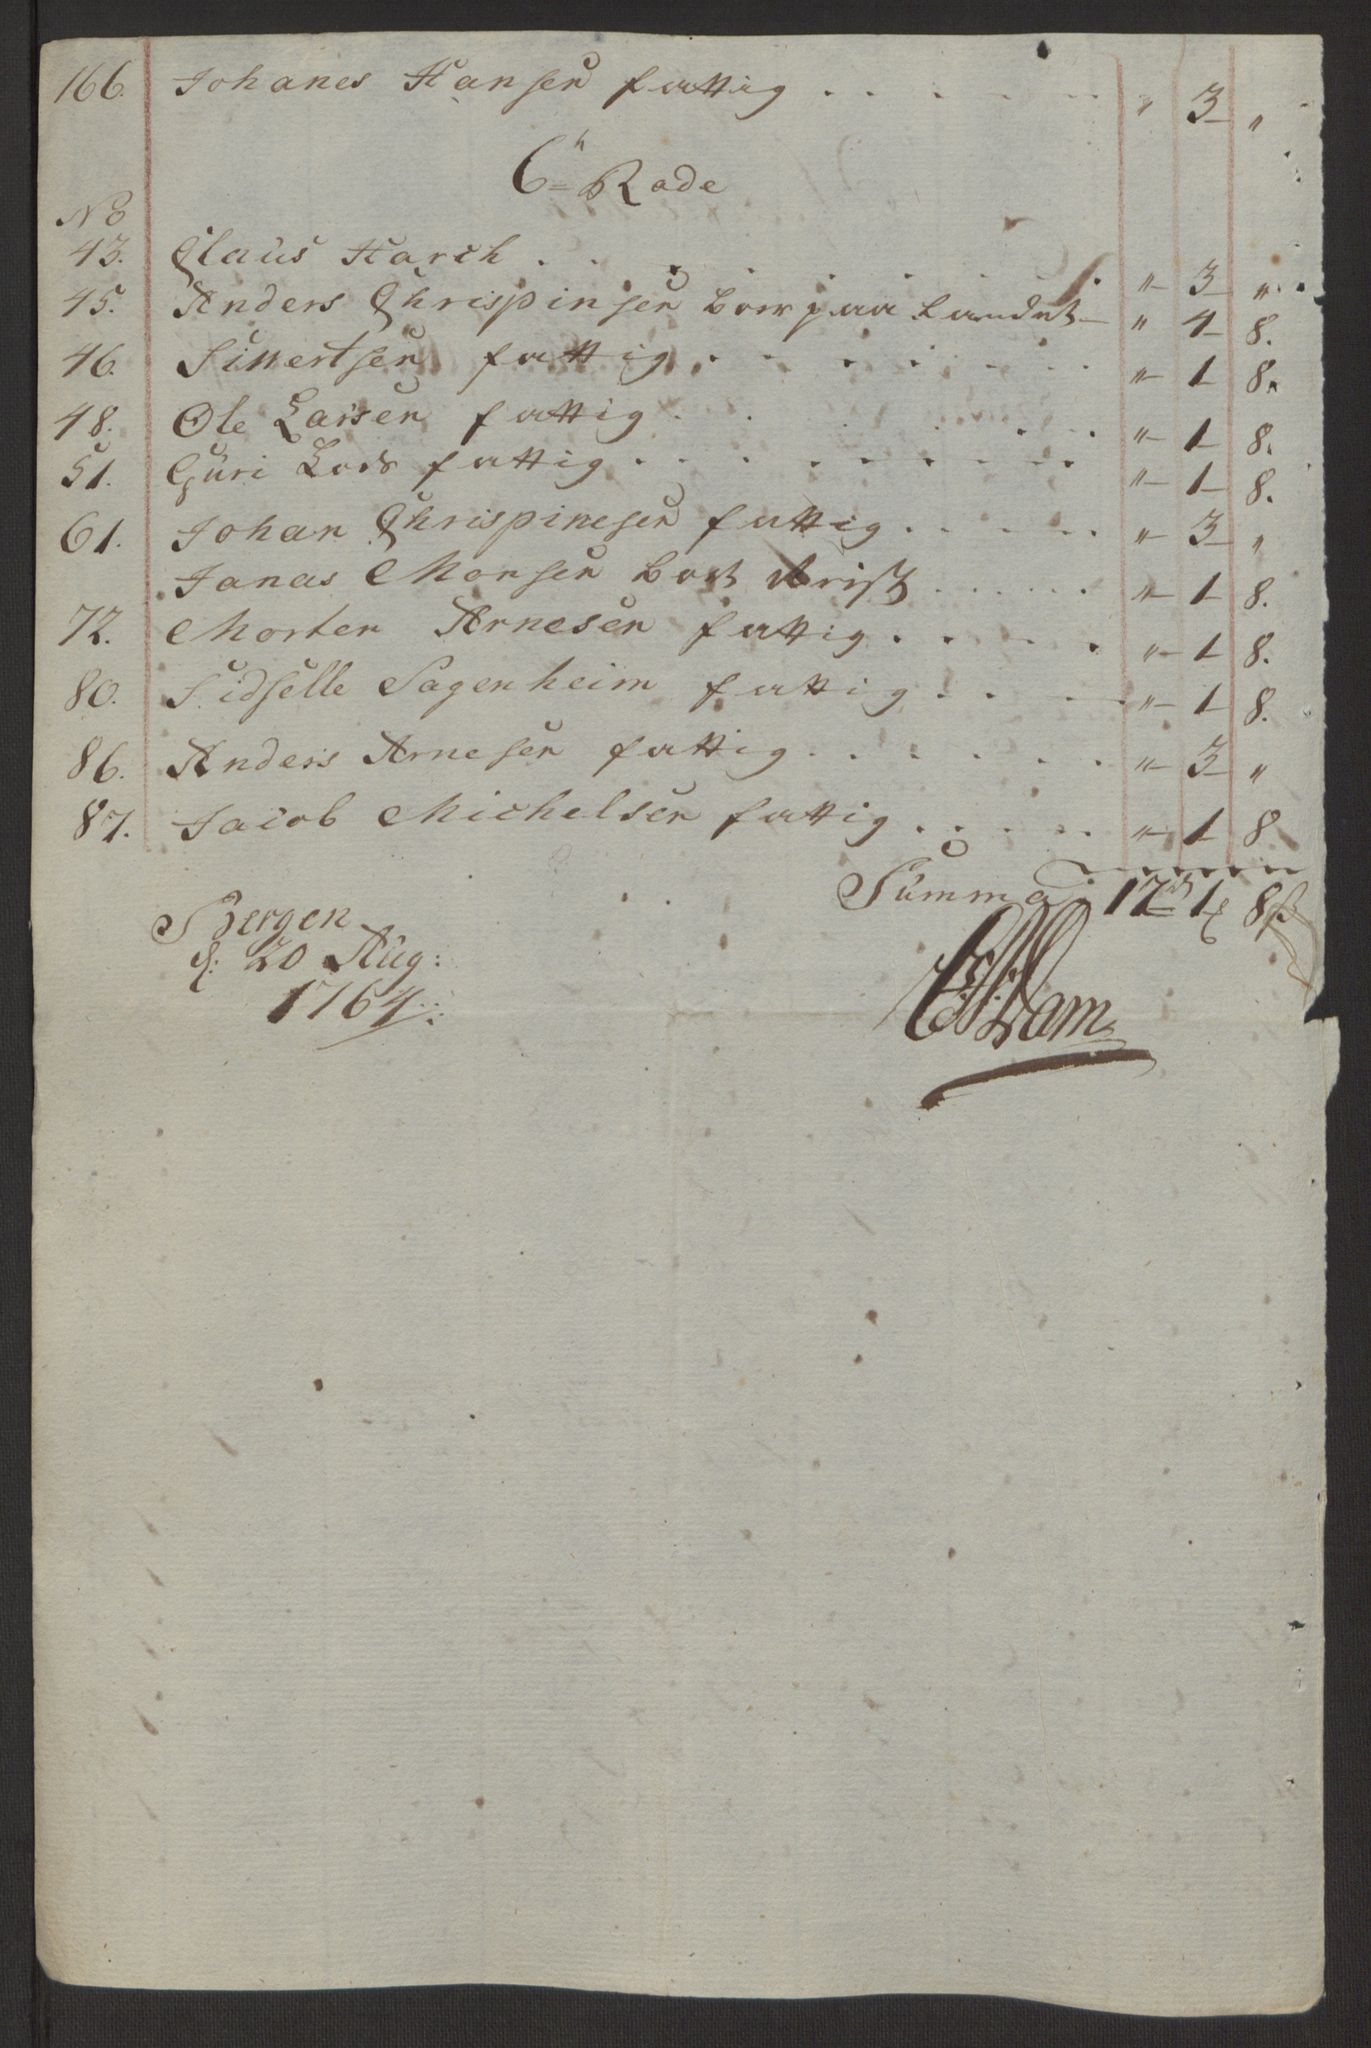 166. Johanes Hansen fattig . . . . . . " 3 "
6te Rode
No
43. Claus Harch . . . . . . . . " 3 "
45. Anders Chrispinsen boer paa Landet " 4 8.
46. Siwertsen fattig . . . . . . . " 1 8.
48. Ole Larsen fattig . . . . . . " 1 8.
51. Guri Lods fattig . . . . . . . . " 1 8.
61. Johan Chrispinesen fattig . . . . . " 3 "
Janas Monsen bort . . . . . . " 1 8.
72. Morten Arnesen fattig . . . . . " 1 8.
80. Sidselle Sagenheim fattig . . . " 1 8.
86. Anders Arnesen fattig . . . . . . " 3 "
87. Jacob Michelsen fattig . . . . . " 1 8
Summa 17 rd 1 8 ß
Bergen
d: 20 Aug:
1764
Dam